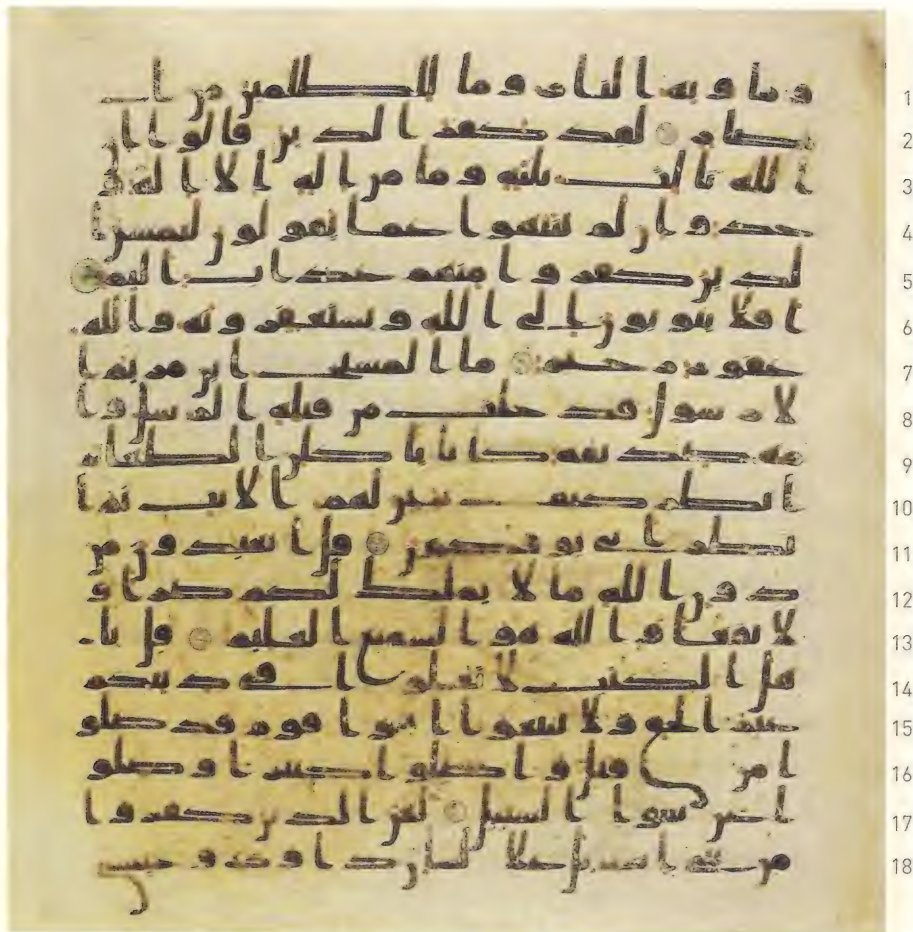 1 و ماويه النار و ما للظلمين من ا
2 نصار لقد كفر الذين قالوا ان
3 الله ثالث ثلثه و ما من اله الا اله و
4 حد و ان لم ينتهوا عما يقولون ليمسن ا
5 لذين كفروا منهم عذاب اليم
6 افلا يتوبون الى الله و يستغفرونه و الله
7 غفور رحيم ما المسيح ابن مريم ا
8 لا رسول قد خلت من قبله الرسل و ا
9 مه صديقه كانا ياكلن الطعام
10 انظر كيف نبين لهم الايت ثم ا
11 نظر انى يوفكون قل اتعبدون من
12 دون الله ما لا يملك لكم ضرا و
13 لا نفعا و الله هو السميع العليم قل يا
14 هل الكتب لا تغلوا فى دينكم
15 غير الحق و لا تتبعوا اهوا قوم قد ضلو
16 ا من قبل و اضلوا كثيرا و ضلو
17 ا عن سوا السبيل لعن الذين كفروا
18 من بنى اسريل على لسان داود و عيسى